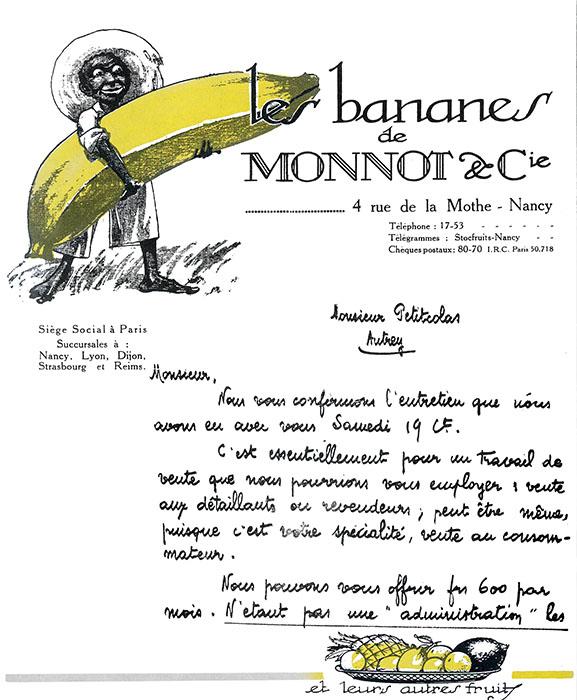 les bananes
de
MONNOT & Cie
4 rue de la Mothe - Nancy
Téléphone : 17-53 - - - - - -
Télégrammes ; Stocfruits-Nancy - -
Chèques postaux ; 80-70 I.R.C. Paris 50.718
Siège Social à Paris
Succursales à :
Nancy, Lyon, Dijon,
Strasbourg et Reims.
Monsieur Petitcolas
Autrey
Monsieur,
Nous vous confirmons l'entretien que nous
avons eu avec vous Samedi 19 Ct.
C'est essentiellement pour un travail de
vente que nous pourrions vous employer : vente
aux détaillants ou revendeurs ; peut être même,
puisque c'est votre spécialité, vente au consom-
mateur.
Nous pouvons vous offrir frs 600 par
mois. N'étant pas une "administration" les
et leurs autres fruits